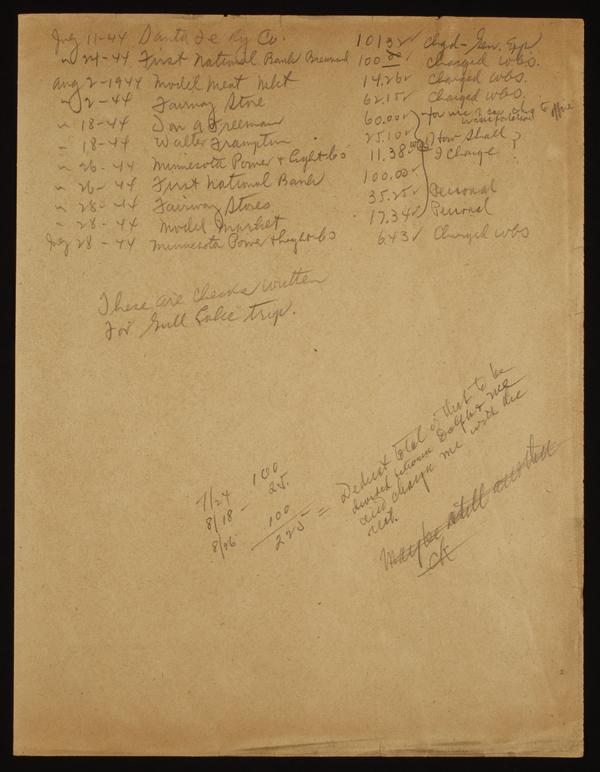 July 11-44 Santa Fe Ry Co. 101 32 ✓ Chgd - Gen. Exp
" 24-44 First National Bank Brainerd 100 00 ✓ Charged WBS.
Aug 2-1944 Model Meat Mkt 14.26 ✓ Charged WBS.
" 2-44 Fairway Store 62.15 ✓ Charged WBS.
" 18-44 Don A Freeman 60.00 ✓ for use of car, to
" 18-44 Walter Frampton 25.10 ✓ How Shall
" 26-44 Minnesota Power & Light Co 11.38 I Charge ?
" 26-44 First National Bank 100.00 ✓
" 28-44 Fairway Stores 35.25 ✓ Personal
" 28-44 Model Market 17.34 ✓ Personal
Aug 28-44 Minnesota Power & Light Co 6.43 ✓ Charged WBS
These are checks written
For Gull Lake trip.
7/24 - 100
8/18 - 25.
8/26 100
225 = Deduct total of that to be
divided between Dolph & me
and charge me with the
rest.
Maybe still another
ck